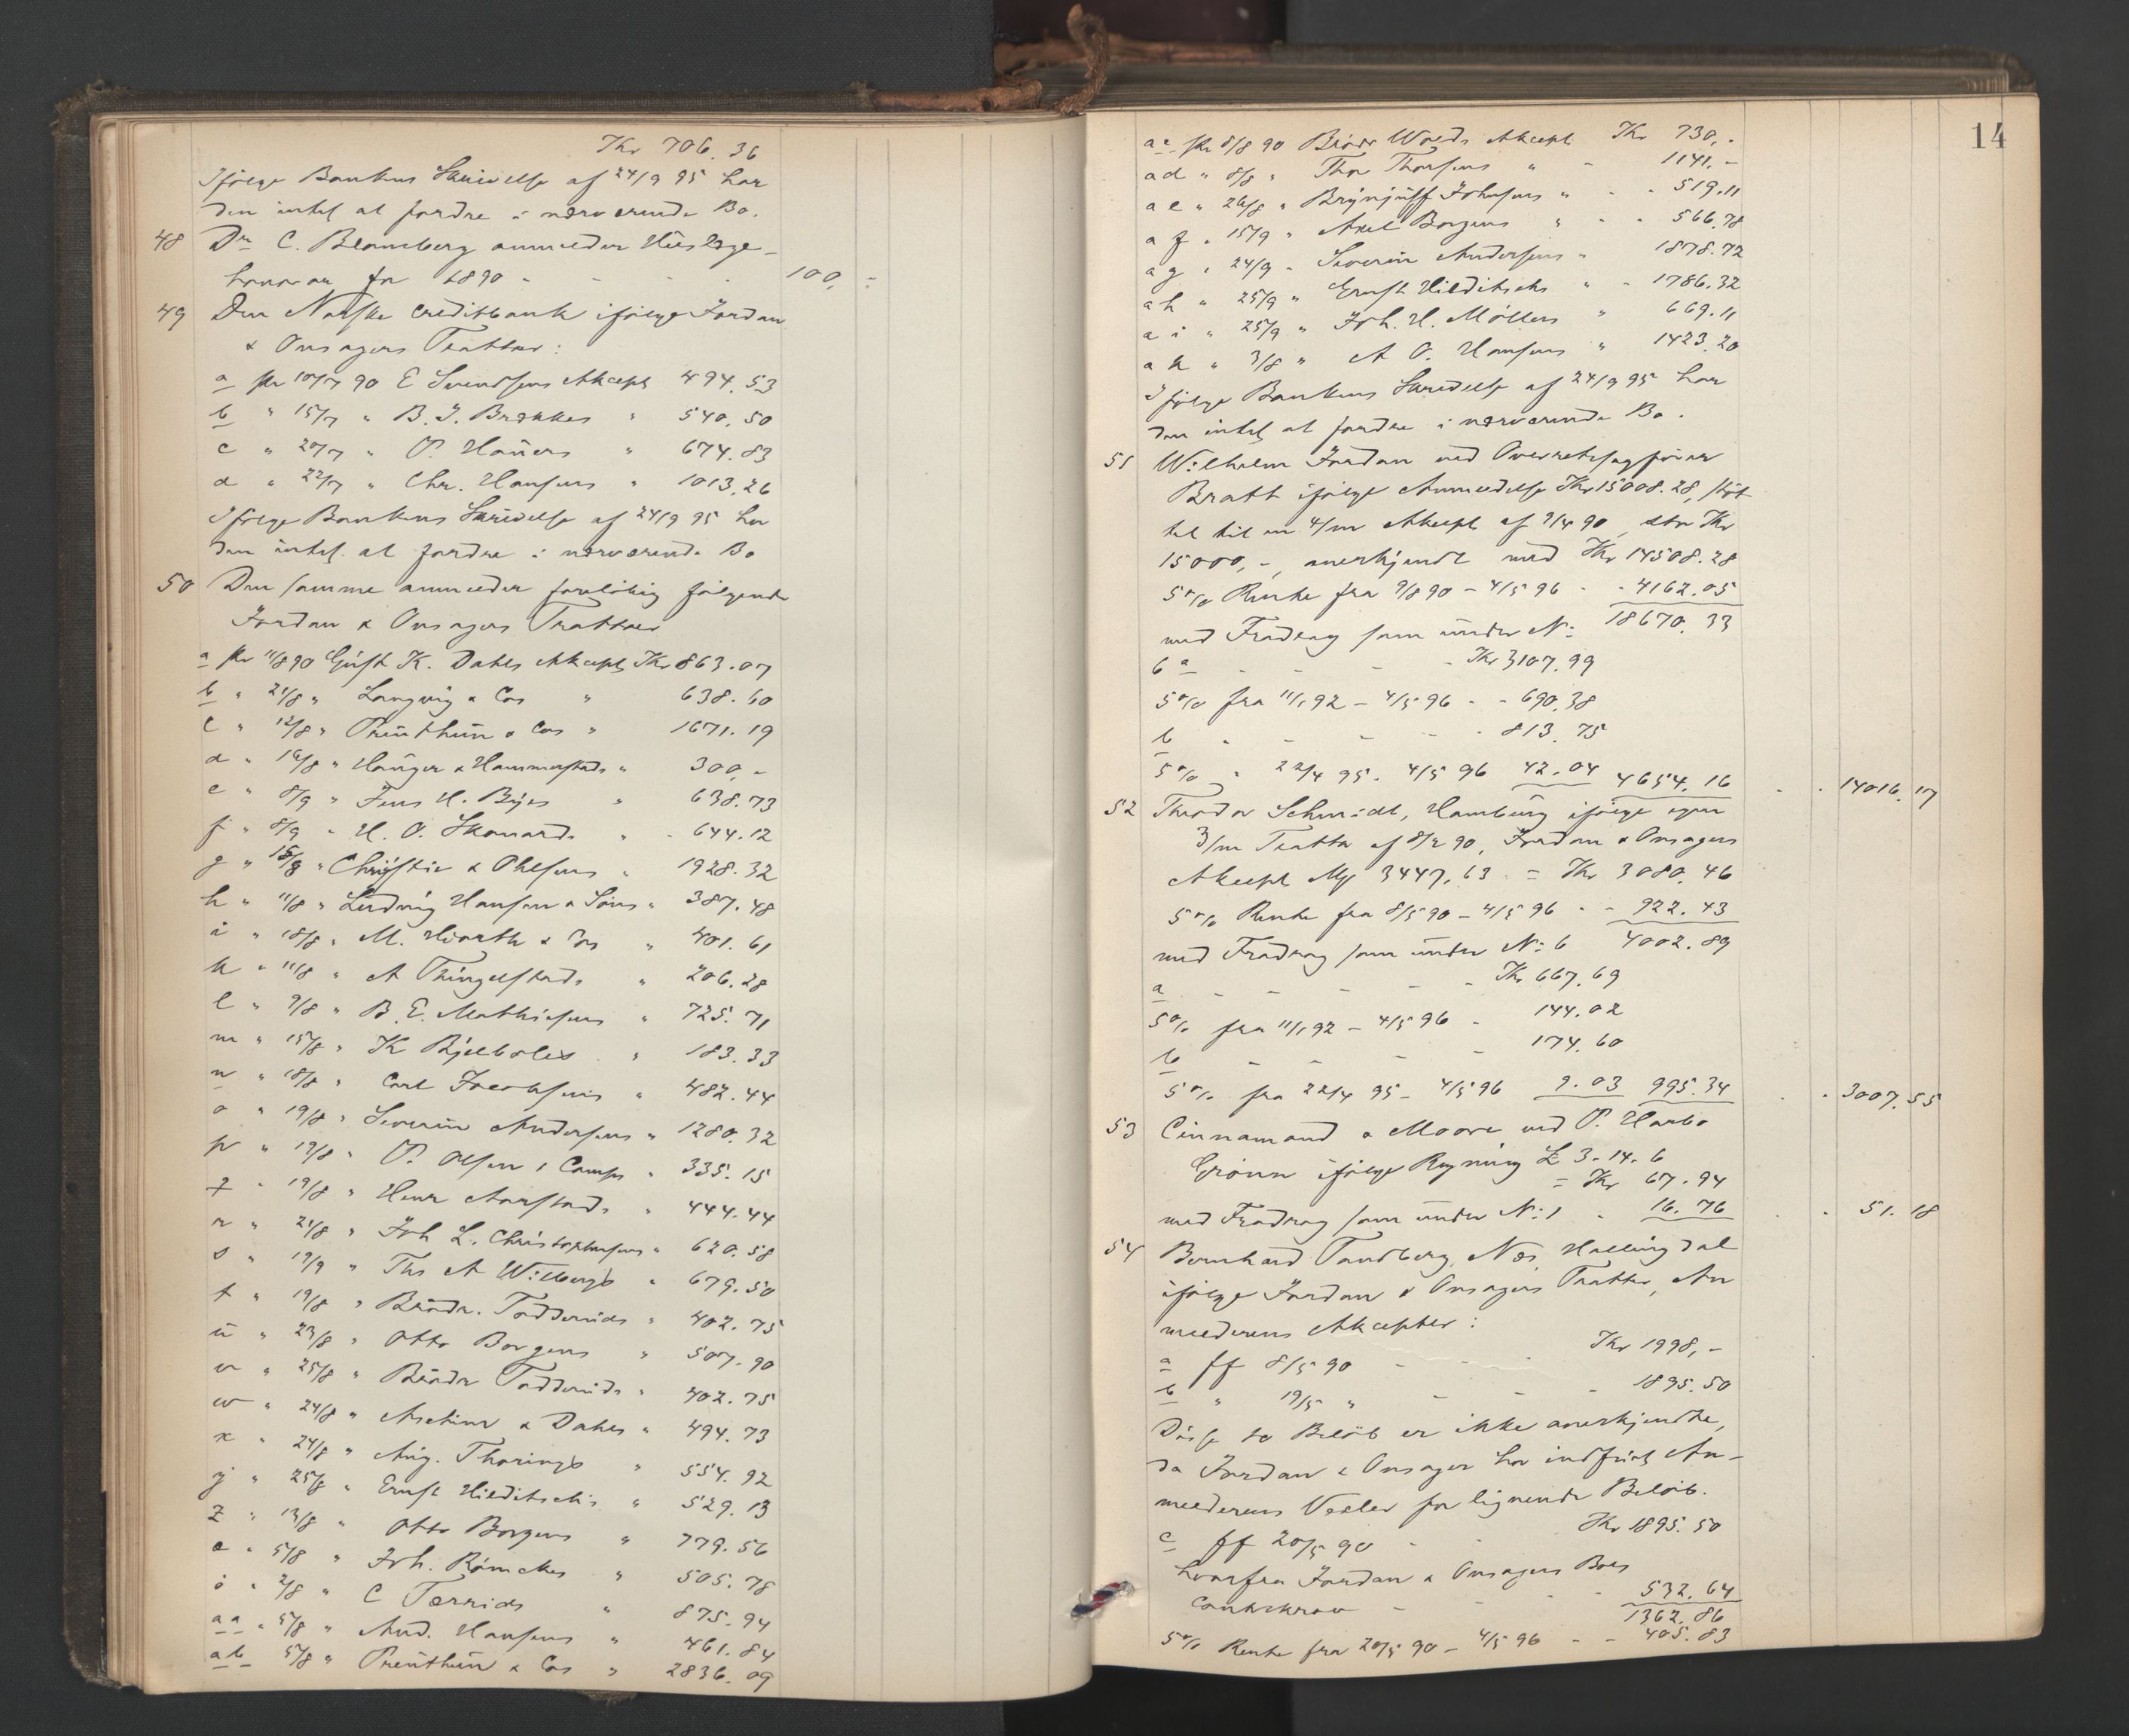 Kr 706.36
Ifølge Bankens Skrivelse af 24/9 95 har
den intet at fordre i nærværende Bo.
48 Dr C. Blomberg anmelder Huslæge-
honorar for 1890 - - - 100,-
49 Den Norske Creditbank ifølge Jordan
& Onsagers Tratter:
a pr 10/7 90 E Svendsens Akcept 494.53
b " 15/7 " B. J. Brekkes " 540.50
c " 20/7 " P. Hauers " 674.83
d " 22/7 " Chr. Hansens " 1013.26
Ifølge Bankens Skrivelse af 24/9 95 har
den intet at fordre i nærværende Bo
50 Den samme anmelder foreløbig følgende
Jordan & Onsagers Tratter
a pr 11/8 90 Gust K. Dahls Akcept Kr 863.07
b " 21/8 " Langvig & Cos " 638.60
c " 12/8 " Prenthun & Cos " 1671.19
d " 16/8 " Hauger & Hammerstads " 300,-
e " 8/9 " Jens H. Byes " 638.73
f " 8/9 " H. O. Skonards " - 644.12
g " 18/8 " Christie & Ohlsens " 1928.32
h " 11/8 " Ludvig Hansen & Søns " 387.48
i " 18/8 " M. Hiorth & Cos " 401.61
k " 11/8 " A Thingelstads " 206.28
l " 9/8 " B. E. Mathisens " 725.71
m " 15/8 " K Bjelboles " 183.33
n " 18/8 " Carl Jacobsens " 482.44
o " 19/8 " Severin Andersens " 1280.32
p " 19/8 " P. Olsen & Comps " 335.15
q " 19/8 " Henr Aarstads " 444.44
r " 21/8 " Joh L. Christophersens " 620.58
s " 19/9 " Ths A Wilbergs " 679.50
t " 19/8 " Brødr. Todderuds " 402.75
u " 23/8 " Otto Borgens " 507.90
v " 25/8 " Brødr Todderuds " 402.75
w " 24/8 " Aschim & Dahls " 494.73
x " 24/8 " Aug. Thorings " 554.92
y " 25/8 " Ernst Hilditschs " 529.13
z " 13/8 " Otto Borgens " 779.56
æ " 5/8 " Joh. Rømckes " 505.78
ø " 2/8 " C Tærrids " 875.94
aa " 5/8 " And. Hansens " 461.84
ab 5/8 " Prenthun & Cos " 2836.09
14
ac pr 8/8 90 Brødr Wolds Akcept Kr 730,-
ad " 8/8 " Thor Thorsens " - 1141.-
ae " 26/8 " Brynjulf Johnsens " - - 519.11
af " 15/9 " Axel Borgens " - - 566.78
ag " 24/9 " Severin Andersens " 1878.72
ah " 25/9 " Ernst Hilditschs " - 1786.32
ai " 25/9 " Joh. H. Møllers " 669.11
ak " 3/8 " A O. Hansens " 1423.20
Ifølge Bankens Skrivelse af 24/9 95 har
den intet at fordre i nærværende Bo.
51 Wilhelm Jordan ved Overretssagfører
Bratt ifølge Anmeldelse Kr 15008.28, støt-
tet til en 4/m Akcept af 9/4 90, stor Kr
15000,-, anerkjendt med Kr 14508.28
5% Rente fra 9/8 90 - 4/5 96 - - 4162.05
18670.33
med Fradrag som under No
6 a - - - - Kr 3107.99
5% fra 11/1 92 - 4/5 96 - - 690.38
b - - - - - 813.75
5% " 22/4 95 - 4/5 96 42.04 4654.16 - - 14016.17
52 Theodor Schmidt, Hamburg ifølge egen
3/m Tratta af 8/2 90, Jordan & Onsagers
Akcept Mk 3447,63 = Kr 3080.46
5% Rente fra 8/5 90 - 4/5 96 - - 922.43
med Fradrag som under No 6 4002.89
a - - - - - Kr 667.69
5% fra 11/1 92 - 4/5 96 - 144.02
b - - - - 174.60
5% fra 22/4 95 - 4/5 96 9.03 995.34 - - 3007.55
53 Cinnamand & Moore ved P. Harbo
Grønn ifølge Regning £ 3-14-6
= Kr 67.94
med Fradrag som under No 1 - 16.76 - 51.18
54 Bernhard Tandberg, Næs, Hallingdal
ifølge Jordan & Onsagers Tratter, An
melderens Akcepter:
a ff 8/5 90 - - - Kr 1998,-
b " 19/5 " - - - 1895.50
Disse to Beløb er ikke anerkjendte,
da Jordan & Onsager har indfriet An-
melderens Vexler for lignende Beløb.
c ff 20/5 90 - Kr 1895.50
hvorfra Jordan & Onsagers Boes
Contrakrav - - - - 532.64
1362.86
5% Rente fra 20/5 90 - 4/5 96 - - 405.83